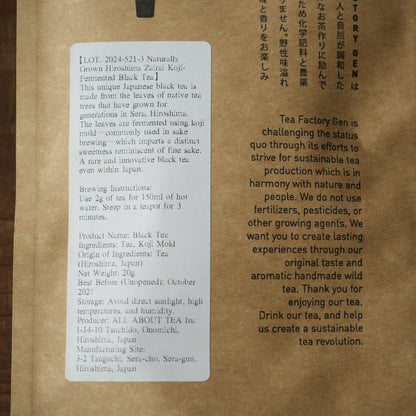 【LOT. 2024-521-3 Naturally
Grown Hiroshima Zairai Koji-
Fermented Black Tea】
This unique Japanese black tea is
made from the leaves of native tea
trees that have grown for
generations in Sera, Hiroshima.
The leaves are fermented using koji
mold—commonly used in sake
brewing—which imparts a distinct
sweetness reminiscent of fine sake.
A rare and innovative black tea
even within Japan.
Brewing Instructions:
Use 2g of tea for 150ml of hot
water. Steep in a teapot for 3
minutes.
Product Name: Black Tea
Ingredients: Tea, Koji Mold
Origin of Ingredients: Tea
(Hiroshima, Japan)
Net Weight: 20g
Best Before (Unopened): October
2027
Storage: Avoid direct sunlight, high
temperatures, and humidity.
Producer: ALL ABOUT TEA Inc.
1-14-10 Tsuchido, Onomichi,
Hiroshima, Japan
Manufacturing Site:
3-2 Tsuguchi, Sera-cho, Sera-gun,
Hiroshima, Japan
TORY GEN は
人と自然が調和した
なお茶作りに励んで
ため化学肥料と農薬
りません。野性味溢れ
味と香りをお楽しみ
Tea Factory Gen is
challenging the status
quo through its efforts to
strive for sustainable tea
production which is in
harmony with nature and
people. We do not use
fertilizers, pesticides, or
other growing agents. We
want you to create lasting
experiences through our
original taste and
aromatic handmade wild
tea. Thank you for
enjoying our tea.
Drink our tea, and help
us create a sustainable
tea revolution.